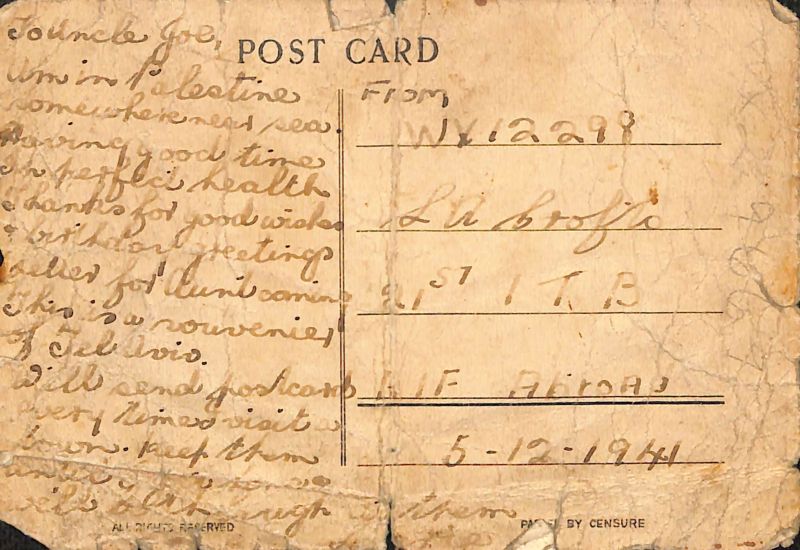 To Uncle Joe,
POST CARD
Am in Palestine
somewhere near sea.
Having good time
In perfect health
Thanks for good wishes
& birthday greetings
Letter for Aunt coming
This is a souvenier
of Tel Aviv.
Will send postcards
every time visit a
town. Keep them
until
will
them
From
WX12298
L A Crofts
21ST I T B
AIF Abroad
5-12-1941
ALL RIGHTS RESERVED
PASSED BY CENSURE